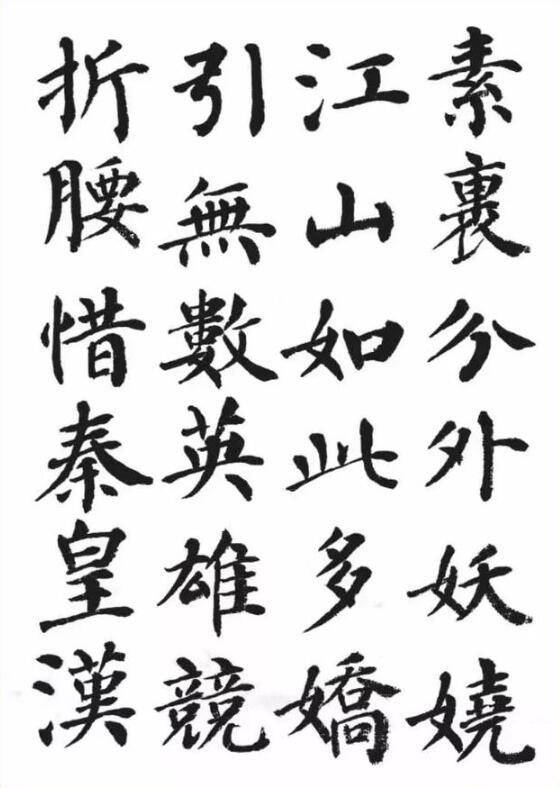 素裏分外妖嬈
江山如此多嬌
引無數英雄競
折腰惜秦皇漢